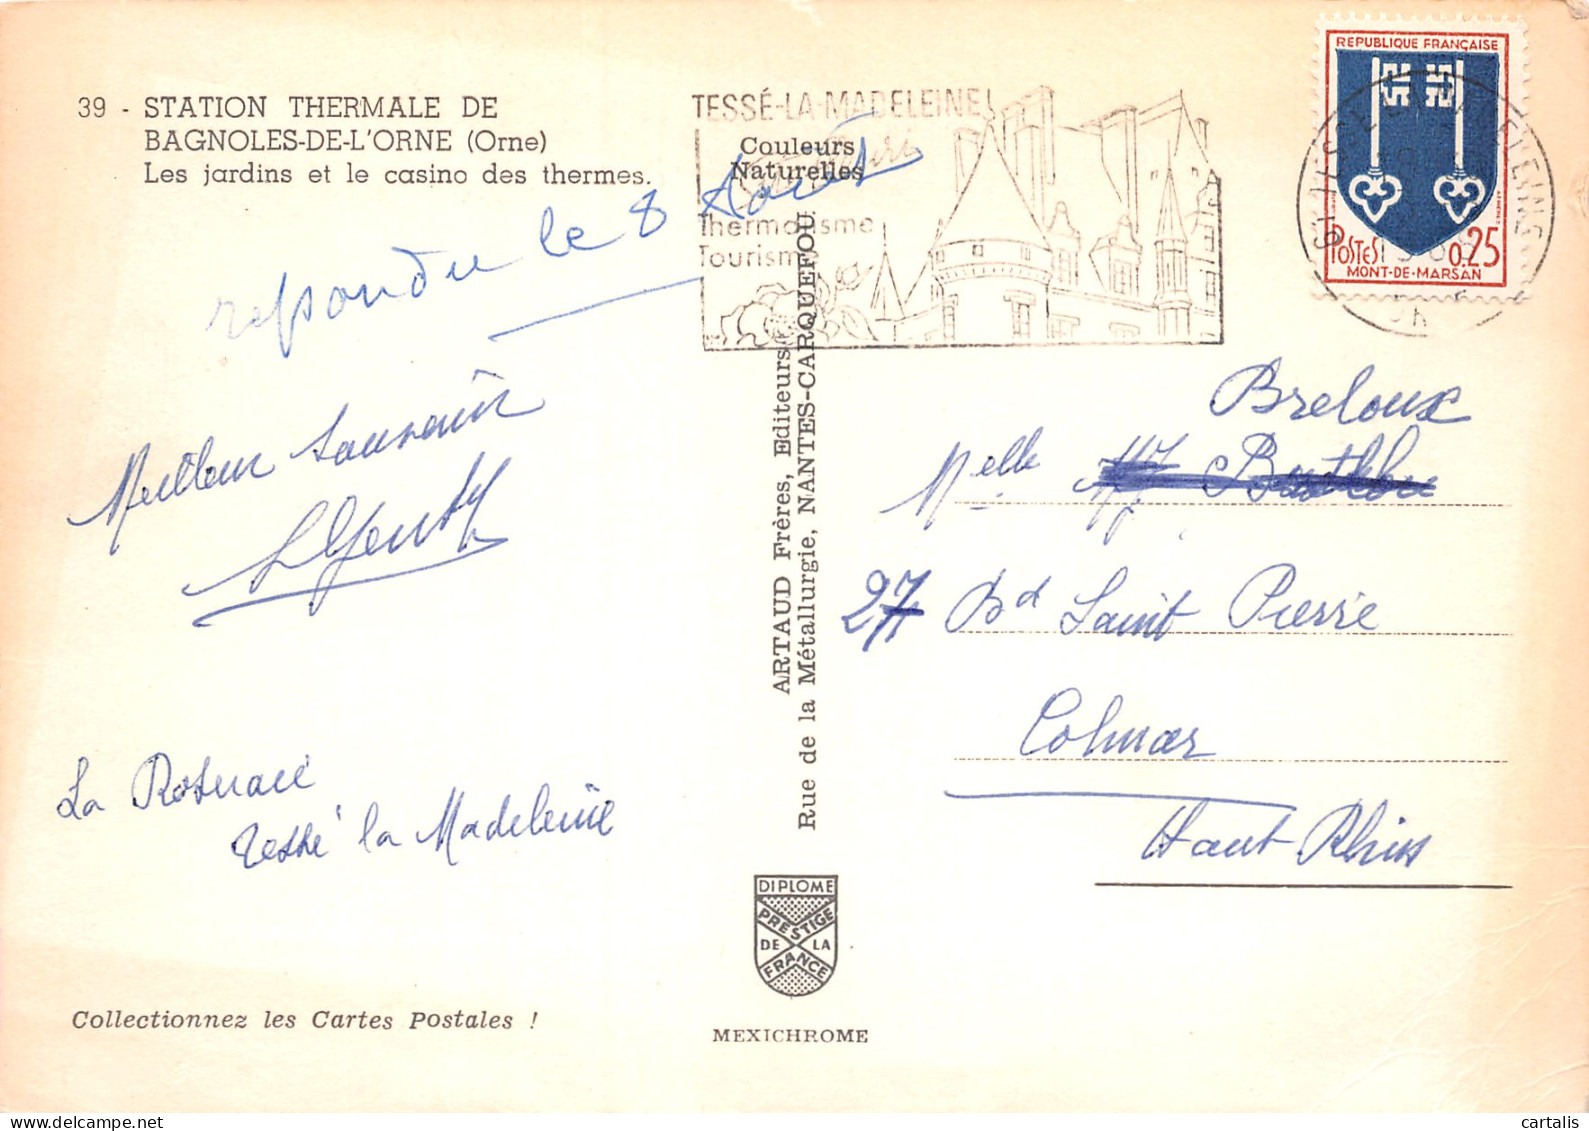 39 - STATION THERMALE DE
BAGNOLES-DE-L'ORNE (Orne)
Les jardins et le casino des thermes.
repondu le 8 Août
Meilleur souvenir
La Roseraie
Tessé la Madeleine
Collectionnez les Cartes Postales !
TESSÉ-LA-MADELEINE
Couleurs
Naturelles
Thermalisme
Tourisme
ARTAUD Frères, Editeurs
Rue de la Métallurgie, NANTES-CARQUEFOU
DIPLOME
PRESTIGE
DE LA
FRANCE
MEXICHROME
REPUBLIQUE FRANÇAISE
POSTES 0,25
MONT-DE-MARSAN
Breloux
Melle
27 Bd Saint Pierre
Colmar
Haut Rhin
cartalis